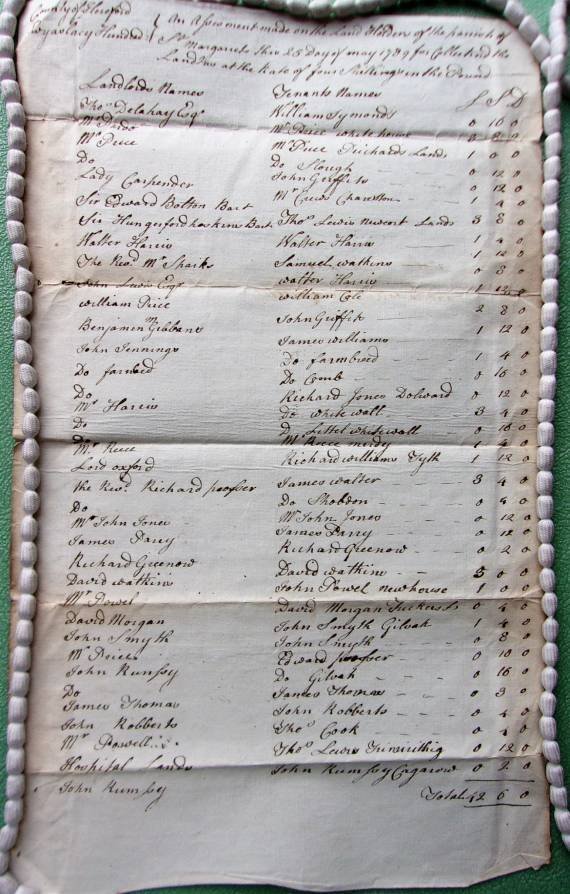 County of Hereford
Wyaslacy Hundred
An Assessment made on the Land Holders of the parrish of
St Margarets this 25 Day of may 1789 for Collecting the
Land Tax at the Rate of four Shillings in the Pound
Landlords Names Tenants Names £ S D
Thos Delahay Esqr William Symonds 0 16 0
Mr Price white house 0 8 0
Mr Price Mr Price Prichards Lands 1 0 0
Do Do Slough 0 12 0
Lady Carpender John Griffits 0 12 0
Sir Edward Botton Bart Mr Crews Chanston 1 4 0
Sir Hungerford hoskins Bart Thos Lewis newcort Lands 3 8 0
Walter Harris Walter Harris 1 4 0
The Revd Mr Sparks Samuel watkins 1 12 0
walter Harris 0 8 0
John Lewis Esqr william Cole 1 12 0
william Price John Griffits 2 8 0
Benjamin Gibbons James williams 1 12 0
John Jennings Do farmbred 1 4 0
Do farmbred Do Comb 0 16 0
Do Richard Jones Dolward 0 12 0
Mr Harris Do white wall 3 4 0
Do Do Littel white wall 0 16 0
Mr Rece Mr Rece 1 4 0
Lord oxford Richard williams Tyth 1 12 0
the Revd Richard prosser James walter 3 4 0
Do Do Shobdon 0 8 0
Mr John Jones Mr John Jones 0 12 0
James Parry James Parry 0 12 0
Richard Greenow Richard Greenow 0 2 0
David watkins David watkins 5 0 0
Mr Powel John Powel newhouse 1 0 0
David Morgan David Morgan 0 4 0
John Smyth John Smyth Gilvah 1 4 0
John Smyth 0 8 0
Mr Price Edward prosser 0 10 0
John Rumsey Do Gilvah 0 16 0
Do James Thomas 0 3 0
James Thomas John Robberts 0 4 0
John Robberts Thos Cook 0 4 0
Mr Powell Thos Lewis 0 12 0
Hospital Lands John Rumsey 0 2 0
John Rumsey
Total 42 6 0